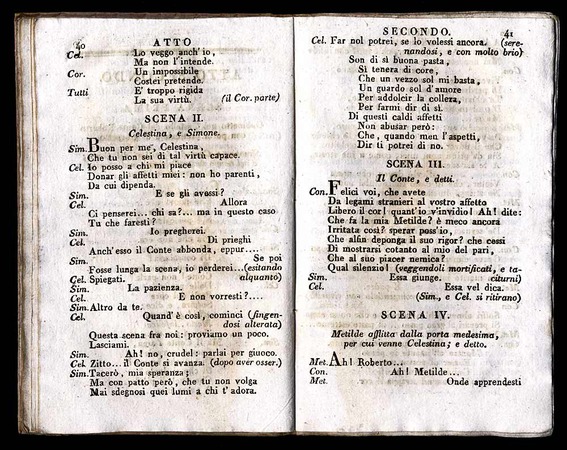 40 ATTO
Cel. Lo veggo anch'io,
Ma non l'intende.
Cor. Un impossibile
Costei pretende.
Tutti E' troppo rigida
La sua virtù. (il Cor. parte)
SCENA II.
Celestina, e Simone.
Sim. Buon per me, Celestina,
Che tu non sei di tal virtù capace.
Cel. Io posso a chi mi piace
Donar gli affetti miei: non ho parenti,
Da cui dipenda.
Sim. E se gli avessi?
Cel. Allora
Ci penserei... chi sa?... ma in questo caso
Tu che faresti?
Sim. Io pregherei.
Cel. Di prieghi
Anch'esso il Conte abbonda, eppur....
Sim. Se poi
Fosse lunga la scena, io perderei...(esitando
Cel. Spiegati. alquanto)
Sim. La pazienza.
Cel. E non vorresti?....
Sim. Altro da te.
Cel. Quand'è così, cominci (fingen-
dosi alterata)
Questa scena fra noi: proviamo un poco.
Lasciami.
Sim. Ah! no, crudel: parlai per giuoco.
Cel. Zitto... il Conte si avanza. (dopo aver osser.)
Sim. Tacerò, mia speranza;
Ma con patto però, che tu non volga
Mai sdegnosi quei lumi a chi t'adora.
SECONDO. 41
Cel. Far nol potrei, se lo volessi ancora. (sere-
nandosi, e con molto brio)
Son di sì buona pasta,
Sì tenera di core,
Che un vezzo sol mi basta,
Un guardo sol d'amore
Per addolcir la collera,
Per farmi dir di sì.
Di questi caldi affetti
Non abusar però:
Che, quando men l'aspetti,
Dir ti potrei di no.
SCENA III.
Il Conte, e detti.
Con. Felici voi, che avete
Da legami stranieri al vostro affetto
Libero il cor! quant'io v'invidio! Ah! dite:
Che fa la mia Metilde? è meco ancora
Irritata così? sperar poss'io,
Che alfin deponga il suo rigor? che cessi
Di mostrarsi cotanto al mio del pari,
Che al suo piacer nemica?
Qual silenzio! (veggendoli mortificati, e ta-
Sim. Essa giunge. citurni)
Cel. Essa vel dica.
(Sim., e Cel. si ritirano)
SCENA IV.
Metilde afflitta dalla porta medesima,
per cui venne Celestina; e detto.
Met. Ah! Roberto...
Con. Ah! Metilde...
Met. Onde apprendesti